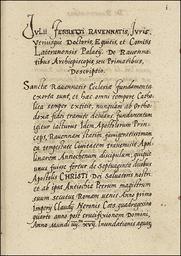 IVLII FERRETTI RAVENNATIS, IVRIS
Vtriusque Doctoris, Equitis, et Comitis
Lateranensis Palatij, De Rauenna-
tibus Archiepiscopis seu Primatibus,
Descriptio.
Sanctae Rauennatis Ecclesiae fundamenta
exorta sunt, et hac annis tempore Catho-
lica semper extitit, nunquam ab Ortho-
doxa fidei tramite deuians. fundamentum
igitur cultumue idem Apostolorum Prin-
ceps, Rauennam
ea tempestate Ciuitatem transmisit Apo-
linarem Antiochenum discipulum, quique
unus fuerat de Septuaginta duobus
Apostolis CHRISTI Dei Saluatoris nostri,
et ab ipsa Antiochia Petrum magistrum
suum secutus Romam uenit Anno primo
Imperij Claudij Neronis Caes. quadragesimo
quarto anno post crucifixionem Domini,
Anno Mundi Inundationis aquarum